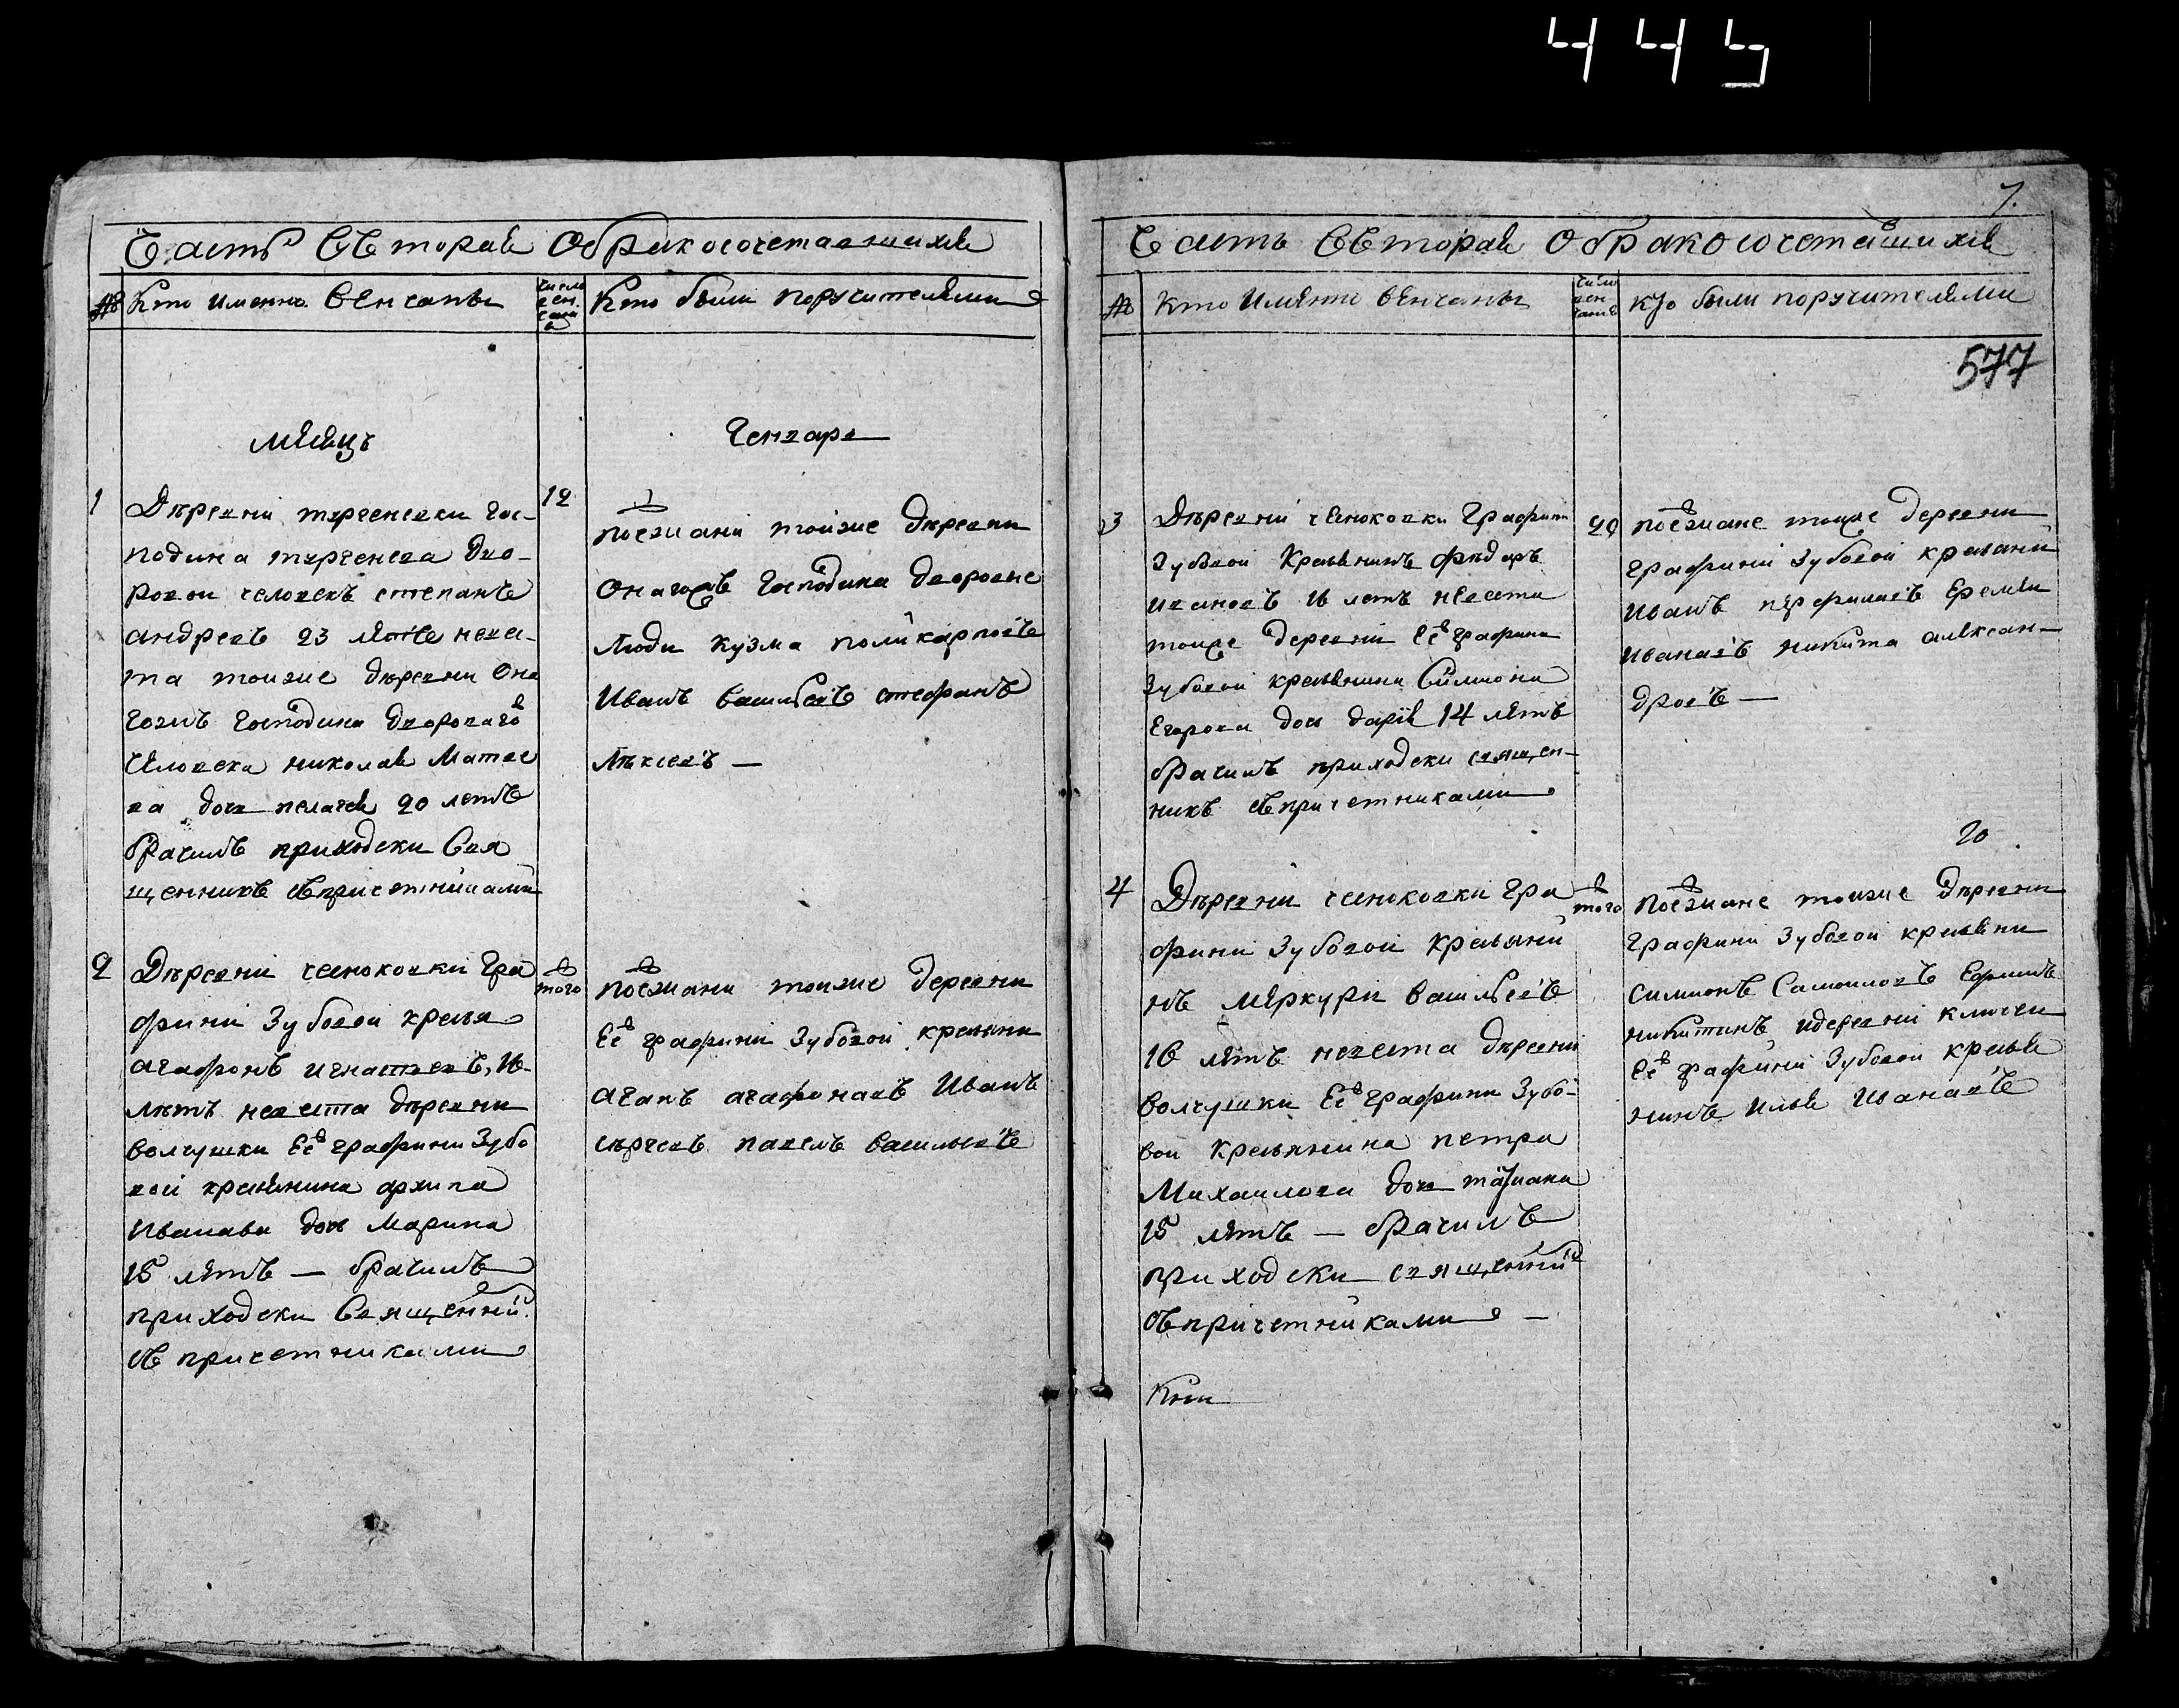 445
7.
Часть Вторая Обракосочетавшихся
№ Кто именно венчаны
число вен. чания
Кто были поручителями
месяцъ
Генваря
1
Деревни тургеневки Гос-
подина тургенева дво-
ровои человекъ степанъ
андреевъ 23 летъ невес-
та тоиже деревни Она
гожъ Господина двороваго
Человека николая Матве
ва дочь пелагея 20 летъ
брачилъ приходски Свя
щенникъ съпричетниками
12
поезжани тойже деревни
Онагожъ Господина дворовые
Люди Кузма поликарповъ
Иванъ Васильевъ стефанъ
Алексеевъ —
2
Деревни чесноковки Гра
фини Зубовои кресья
агафонъ игнатьевъ, 16
летъ невеста деревни
волчушки Ее графини Зубо
вои кресьянина архипа
Иванава дочь Марина
15 летъ — брачилъ
приходски Священни
съ причетниками
того
поезжани тоиже деревни
Ее графини Зубовои кресьяни
агапъ агафонавъ Иванъ
сергеевъ павелъ васильевъ
Часть Вторая Обракосочетавшихся
№ Кто Имянно венчаны
число вен чания
кто были поручителями
577
3
Деревни чесноковки Графини
Зубовои Кресьянинъ федаръ
ивановъ 16 летъ невеста
тоиже деревни Ее графини
Зубовои кресьянина Симиона
Егорова дочь дария 14 летъ
брачилъ приходски священ-
никъ съпричетниками
20
поезжане тоиже деревни
графини Зубовои кресьяни
Иванъ перфилавъ Еремеи
Иванавъ никита алексан-
дровъ —
20
4
Деревни чесноковки Гра
фини Зубовои кресьяни
нъ меркури васильевъ
16 летъ невеста деревни
волчушки Ее графини Зубо-
вои Кресьянина петра
Михаилова дочь татиана
15 летъ — брачилъ
приходски священни
съпричетниками —
того
поезжане тоиже деревни
графини Зубовои кресьяни
симионъ Самоиловъ Ефимъ
никитинъ идеревни ключи
Ее графини Зубовои кресья
нинъ Илья Иванавъ